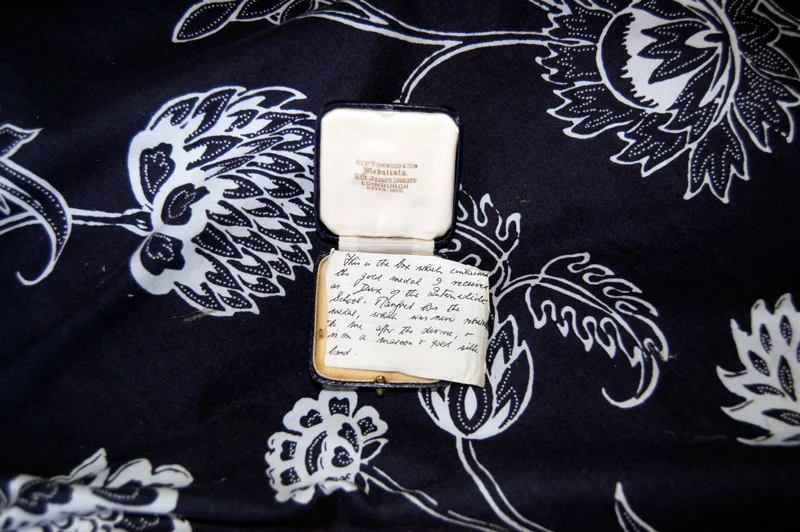 Alexr Kirkwood & Son
Medallists,
9, St James Square
EDINBURGH
ESTAB. 1826
This is the box which contained
the gold medal I received
as Dux of the Intermediate
School. Manfred has the
medal, which was never returned
to me after the divorce, &
is on a maroon & gold silk
band.